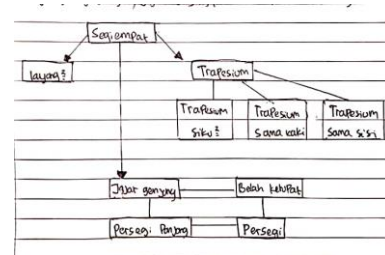 Segiempat
layang²
Trapesium
Trapesium Trapesium Trapesium
Siku² Sama kaki Sama sisi
Jajar genjang Belah ketupat
Persegi Panjang Persegi